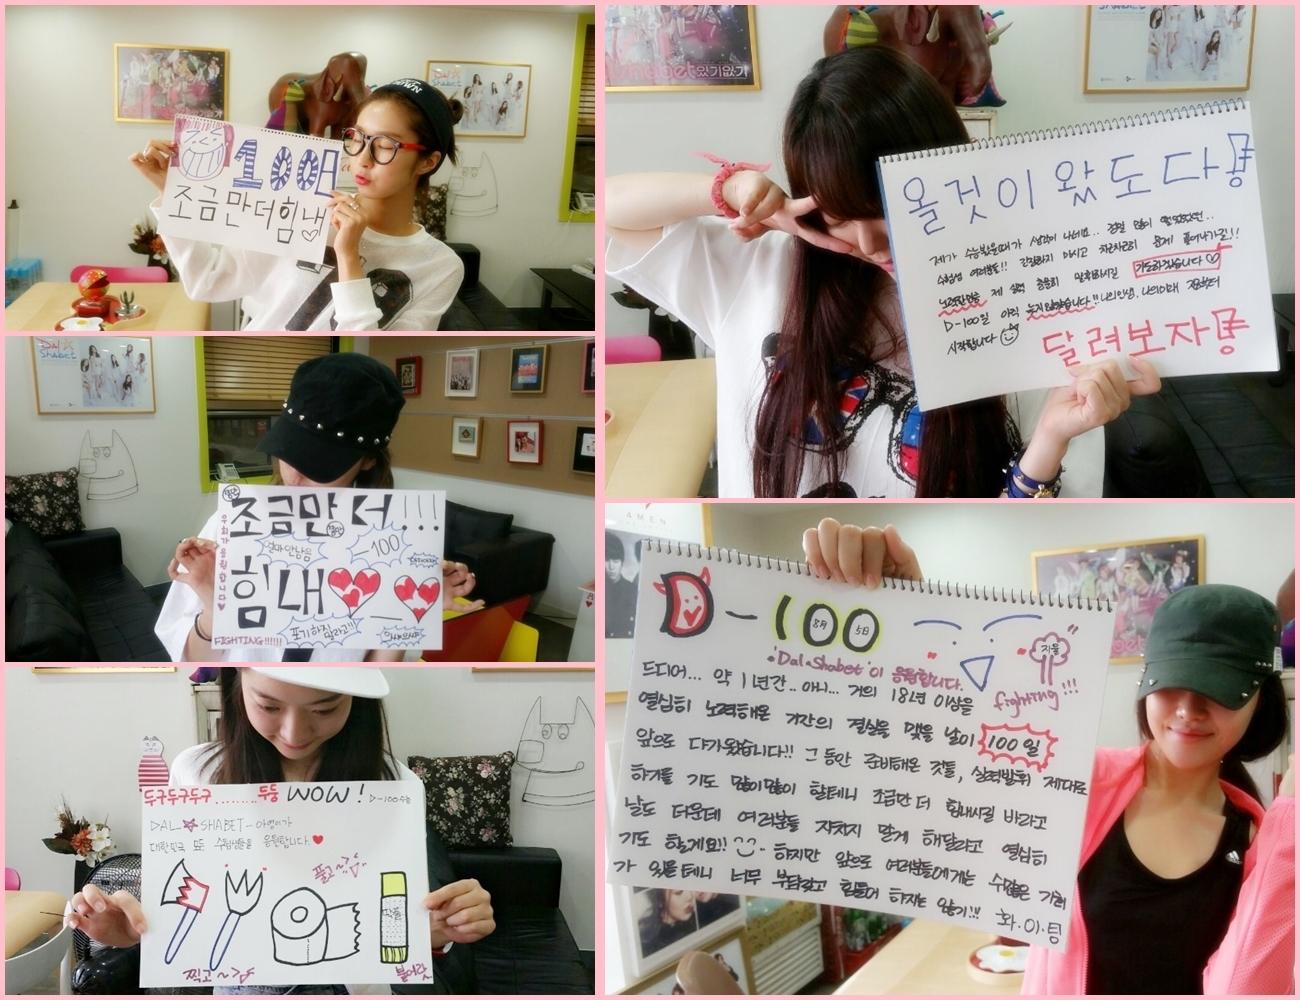 DOWN
Dal★
Shabet
100일
조금만더힘냅
Dal★
Shabet
조금만 더!!!
얼마안남음
-100
힘내
우리가응원합니다♥
포기하지말라고!!
FIGHTING!!!!!!
두구두구두구.........두둥 WOW! D-100수능
DAL★SHABET-아영이가
대한민국 모든 수험생들을 응원합니다.♥
찍고~
풀고~
붙어랏
있기없기
올것이 왔도다!!
제가 수능봤을때가 생각이 나네요.. 정말 많이 떨렸었던..
수험생 여러분!! 긴장하지 마시고 차근차근히 문제 풀어나가길!!
노력한만큼 제 실력 충분히 발휘하시길 기도하겠습니다♡
D-100일 아직 늦지않았습니다!! 나의인생, 나의미래 지금부터
시작합니다
달려보자!!
AMEN
D-100
8月 5日
지물
"Dal★Shabet"이 응원합니다.
fighting!!!
드디어... 약 1년간.. 아니... 거의 18년 이상을
열심히 노력해온 기간의 결실을 맺을 날이 100일
앞으로 다가왔습니다!! 그동안 준비해온 것들, 실력발휘 제대로
하기를 기도 많이많이 할테니 조금만 더 힘내시길 바라고
날도 더운데 여러분들 지치지 말게 해달라고 열심히
기도 할게요!! 하지만 앞으로 여러분들에게는 수많은 기회
가 있을테니 너무 부담갖고 힘들어 하지도 않기!!!
화.이.팅
adidas